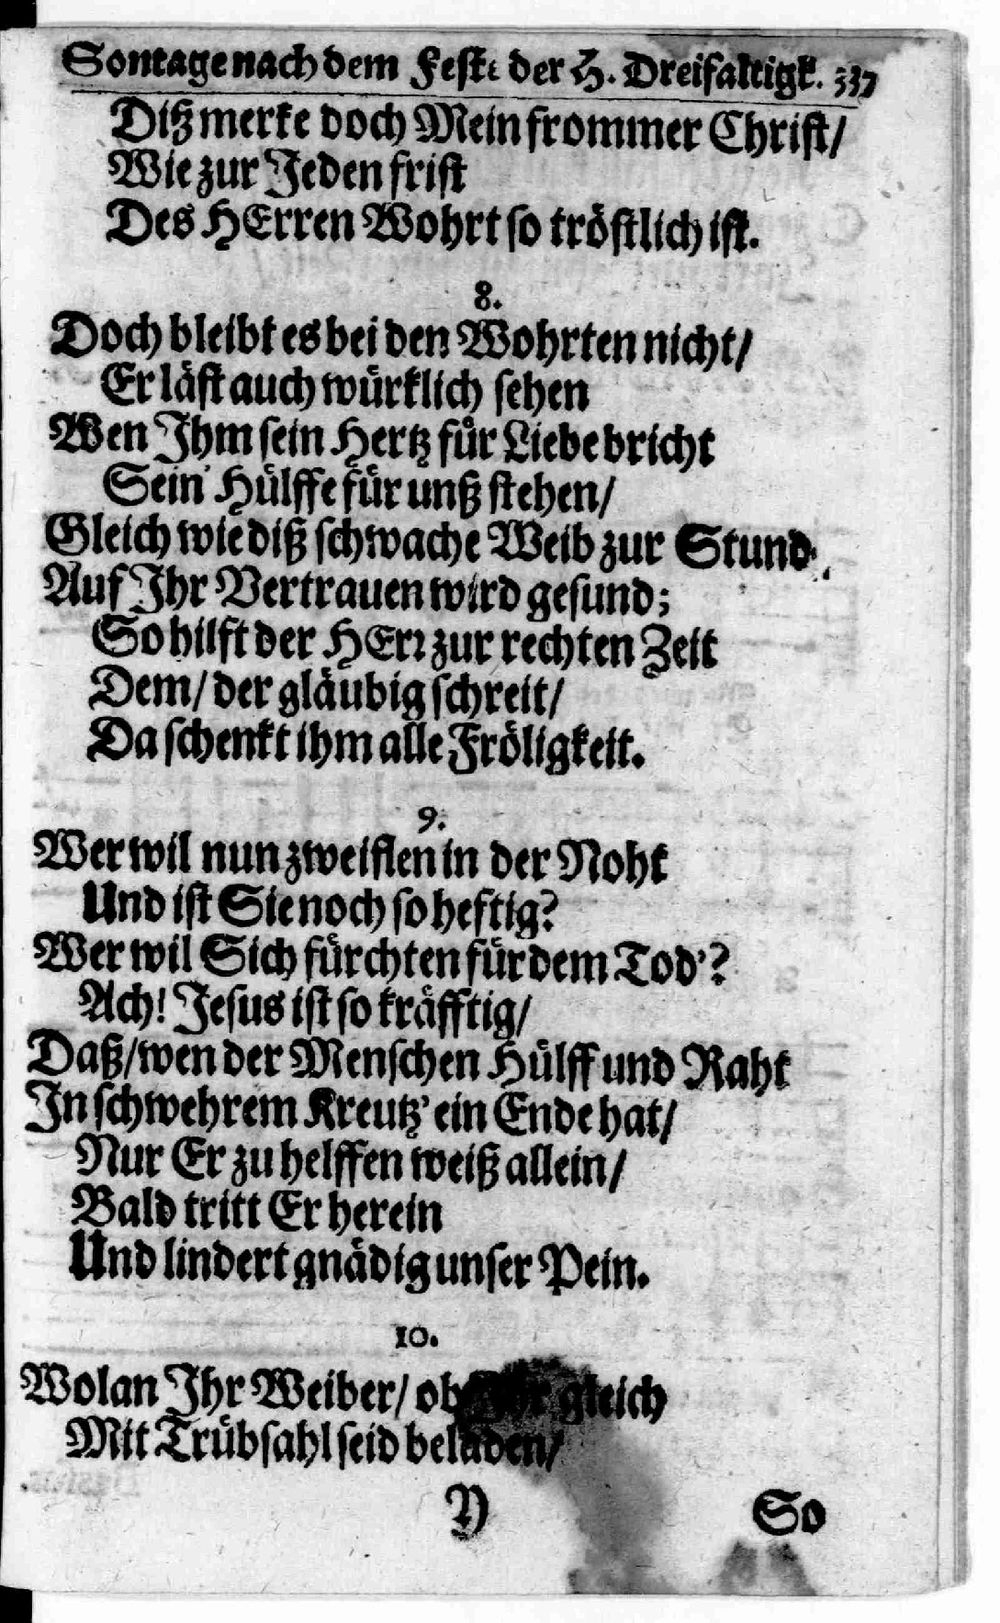 Sontage nach dem Feste der H. Dreifaltigk. 337
Ditz merke doch Mein frommer Christ/
Wie zur Jeden frist
Des HErren Wohrt so tröstlich ist.
8.
Doch bleibt es bei den Wohrten nicht/
Er läst auch würklich sehen
Wen Ihm sein Hertz für Liebe bricht
Sein' Hülffe für unß stehen/
Gleich wie diß schwache Weib zur Stund'
Auf Ihr Vertrauen wird gesund;
So hilft der HErr zur rechten Zeit
Dem/ der gläubig schreit/
Da schenkt ihm alle Fröligkeit.
9.
Wer wil nun zweiflen in der Noht
Und ist Sie noch so heftig?
Wer wil Sich fürchten für dem Tod'?
Ach! Jesus ist so kräfftig/
Daß/ wen der Menschen Hülff und Raht
In schwehrem Kreutz' ein Ende hat/
Nur Er zu helffen weiß allein/
Bald tritt Er herein
Und lindert gnädig unser Pein.
10.
Wolan Ihr Weiber/ ob gleich
Mit Trübsahl seid beladen/
Y So